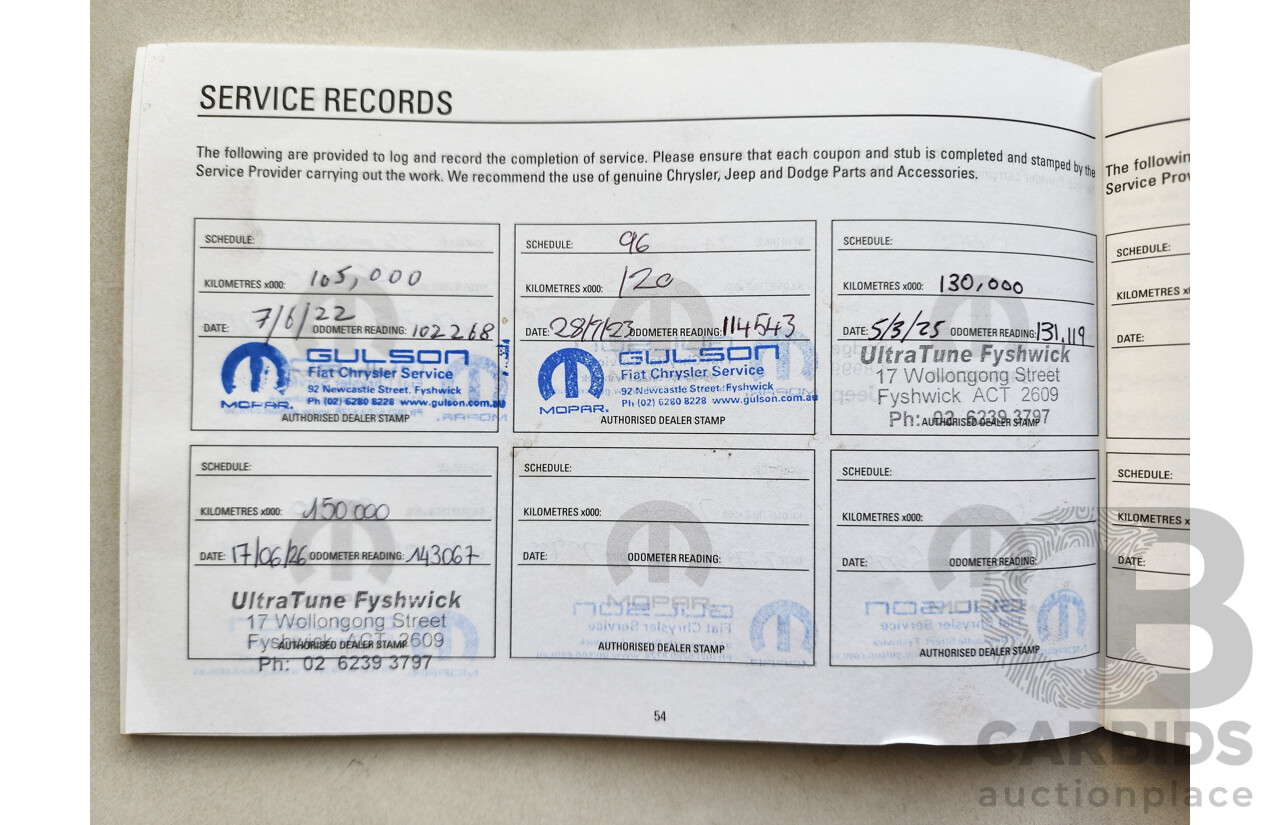 SERVICE RECORDS
The following are provided to log and record the completion of service. Please ensure that each coupon and stub is completed and stamped by the
Service Provider carrying out the work. We recommend the use of genuine Chrysler, Jeep and Dodge Parts and Accessories.
SCHEDULE:
KILOMETRES x000: 105,000
DATE: 7/6/22 ODOMETER READING: 102268
GULSON
Fiat Chrysler Service
92 Newcastle Street, Fyshwick
Ph (02) 6280 8228 www.gulson.com.au
MOPAR.
AUTHORISED DEALER STAMP
SCHEDULE: 96
KILOMETRES x000: 120
DATE: 28/7/23 ODOMETER READING: 114543
GULSON
Fiat Chrysler Service
92 Newcastle Street, Fyshwick
Ph (02) 6280 8228 www.gulson.com.au
MOPAR.
AUTHORISED DEALER STAMP
SCHEDULE:
KILOMETRES x000: 130,000
DATE: 5/3/25 ODOMETER READING: 131,119
UltraTune Fyshwick
17 Wollongong Street
Fyshwick ACT 2609
Ph: 02 6239 3797
AUTHORISED DEALER STAMP
SCHEDULE:
KILOMETRES x000: 150000
DATE: 17/06/26 ODOMETER READING: 143067
UltraTune Fyshwick
17 Wollongong Street
Fyshwick ACT 2609
AUTHORISED DEALER STAMP
Ph: 02 6239 3797
SCHEDULE:
KILOMETRES x000:
DATE: ODOMETER READING:
MOPAR
AUTHORISED DEALER STAMP
SCHEDULE:
KILOMETRES x000:
DATE: ODOMETER READING:
AUTHORISED DEALER STAMP
54
The followin
Service Pro
SCHEDULE:
KILOMETRES x
DATE:
SCHEDULE:
KILOMETRES x
DATE:
CARBIDS
auctionplace